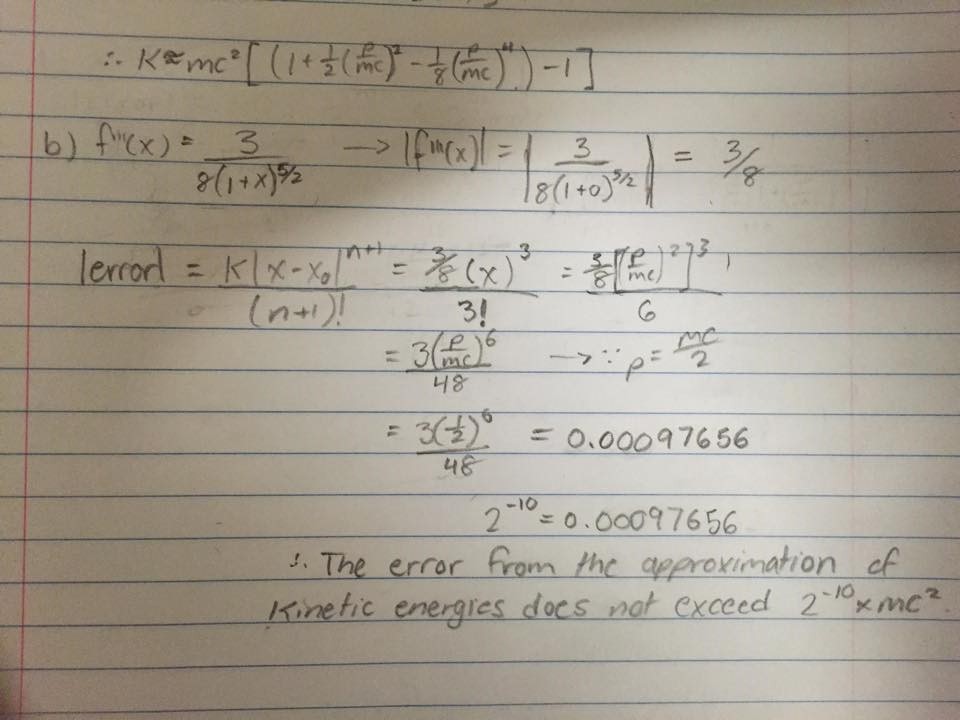 ∴ K≈mc² [ (1+½(P/mc)² - ⅛(P/mc)⁴) - 1 ]
b) f'''(x) = 3/8(1+x)^5/2 → |f'''(x)| = |3/8(1+0)^5/2| = 3/8
|error| = K|x-x₀|^n+1/(n+1)! = 3/8(x)³/3! = 3/8[(P/mc)²]³/6
= 3(P/mc)⁶/48 → ∵ p = mc/2
= 3(½)⁶/48 = 0.00097656
2⁻¹⁰ = 0.00097656
∴ The error from the approximation of
Kinetic energies does not exceed 2⁻¹⁰ x mc².